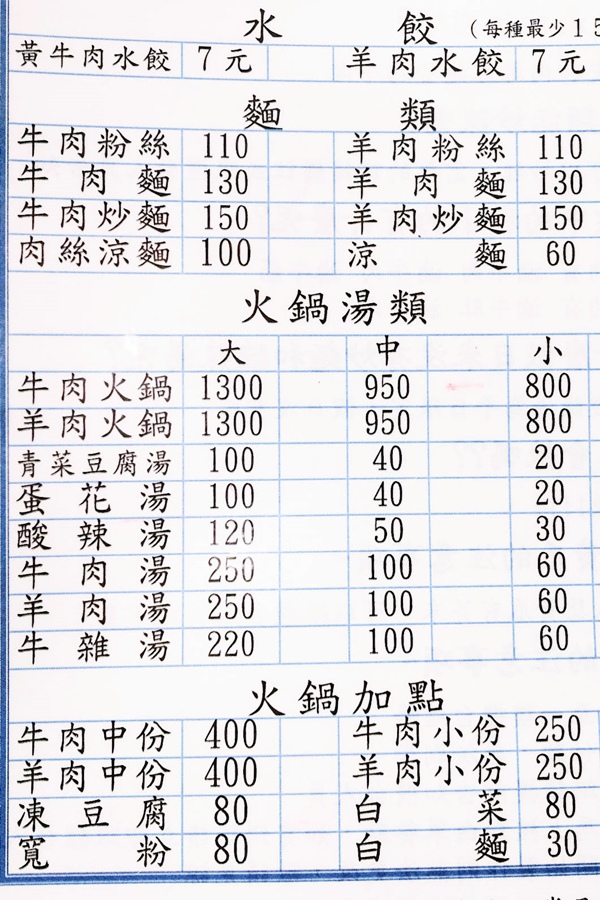 水餃 (每種最少15
黃牛肉水餃 7元 羊肉水餃 7元
麵類
牛肉粉絲 110 羊肉粉絲 110
牛肉麵 130 羊肉麵 130
牛肉炒麵 150 羊肉炒麵 150
肉絲涼麵 100 涼麵 60
火鍋湯類
大 中 小
牛肉火鍋 1300 950 800
羊肉火鍋 1300 950 800
青菜豆腐湯 100 40 20
蛋花湯 100 40 20
酸辣湯 120 50 30
牛肉湯 250 100 60
羊肉湯 250 100 60
牛雜湯 220 100 60
火鍋加點
牛肉中份 400 牛肉小份 250
羊肉中份 400 羊肉小份 250
凍豆腐 80 白菜 80
寬粉 80 白麵 30